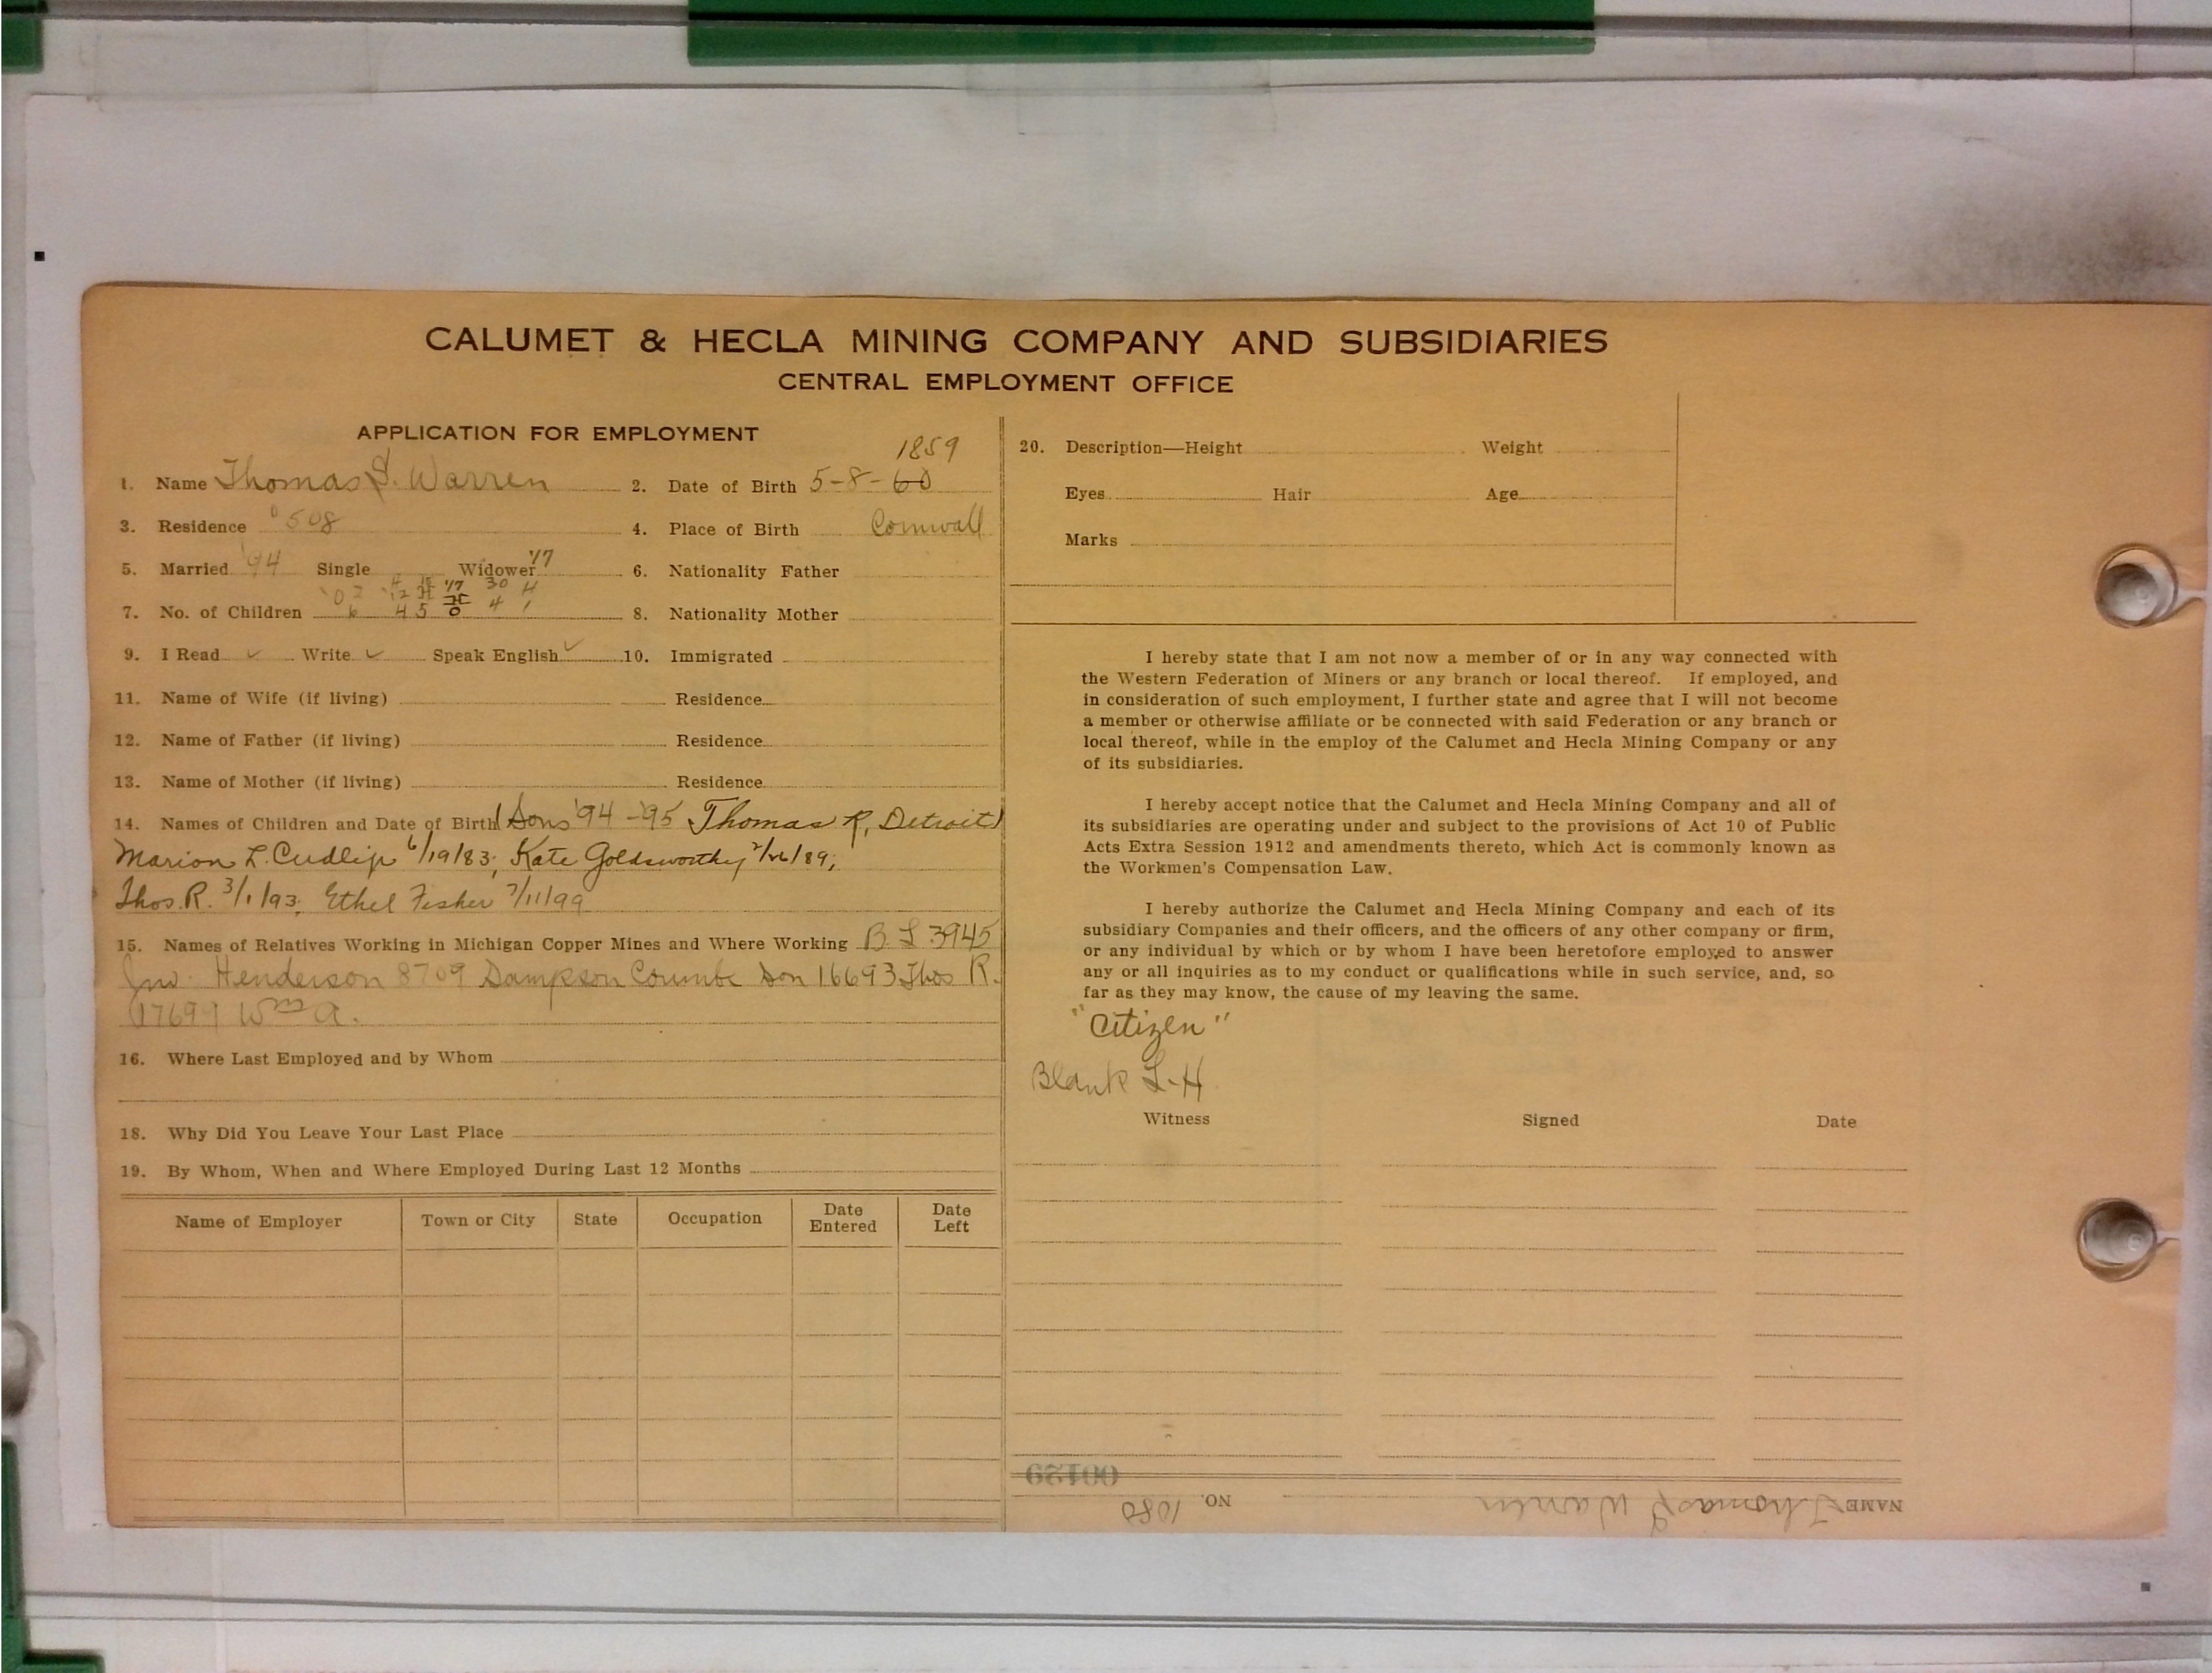 CALUMET & HECLA MINING COMPANY AND SUBSIDIARIES
CENTRAL EMPLOYMENT OFFICE
APPLICATION FOR EMPLOYMENT
1859
1. Name Thomas S. Warren 2. Date of Birth 5-8-60
3. Residence 508 4. Place of Birth Cornwall
5. Married '94 Single Widower '17 6. Nationality Father
'02 '12 '17 30 H
7. No. of Children 6 4 5 0 4 1 8. Nationality Mother
9. I Read ✓ Write ✓ Speak English ✓ 10. Immigrated
11. Name of Wife (if living) Residence
12. Name of Father (if living) Residence
13. Name of Mother (if living) Residence
14. Names of Children and Date of Birth (Sons '94-'95 Thomas R, Detroit)
Marion L. Cudlip 6/19/83; Kate Goldsworthy /89;
Thos. R. 3/1/93; Ethel Fisher 7/11/99
15. Names of Relatives Working in Michigan Copper Mines and Where Working B L 3945
Jno. Henderson 8709 Sampson Coumbe Son 16693 Thos R.
17699 Wm A.
16. Where Last Employed and by Whom
18. Why Did You Leave Your Last Place
19. By Whom, When and Where Employed During Last 12 Months
Name of Employer Town or City State Occupation Date Entered Date Left
20. Description—Height Weight
Eyes Hair Age
Marks
I hereby state that I am not now a member of or in any way connected with
the Western Federation of Miners or any branch or local thereof. If employed, and
in consideration of such employment, I further state and agree that I will not become
a member or otherwise affiliate or be connected with said Federation or any branch or
local thereof, while in the employ of the Calumet and Hecla Mining Company or any
of its subsidiaries.
I hereby accept notice that the Calumet and Hecla Mining Company and all of
its subsidiaries are operating under and subject to the provisions of Act 10 of Public
Acts Extra Session 1912 and amendments thereto, which Act is commonly known as
the Workmen's Compensation Law.
I hereby authorize the Calumet and Hecla Mining Company and each of its
subsidiary Companies and their officers, and the officers of any other company or firm,
or any individual by which or by whom I have been heretofore employed to answer
any or all inquiries as to my conduct or qualifications while in such service, and, so
far as they may know, the cause of my leaving the same.
"Citizen"
Blank L-H
Witness Signed Date
00129
NAME Thomas S Warren NO. 1080